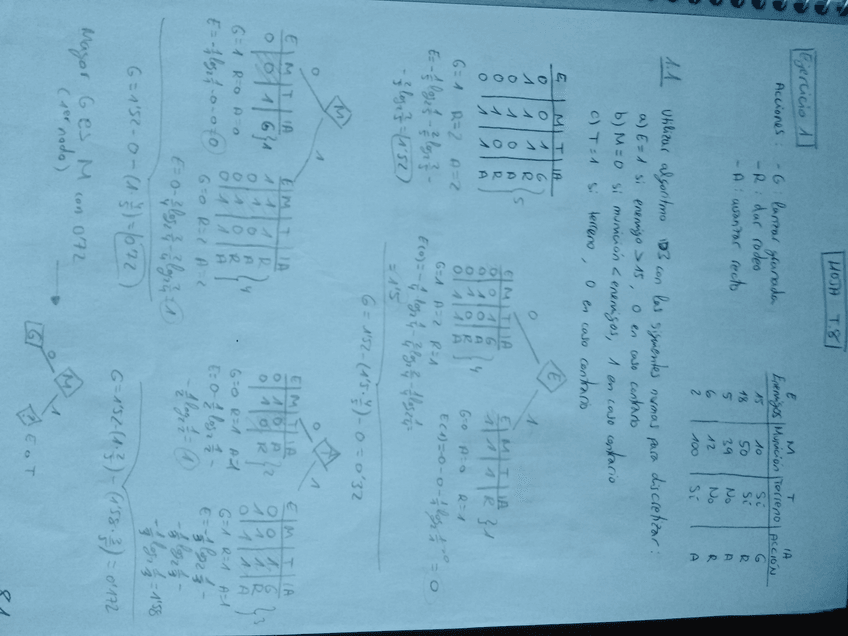 HOJA T.8
Ejercicio 1
Acciones: - G lanzar granada
- R: dar rodeo
- A: avanzar recto
E M T A
Enemigos Munición Terreno ACCIÓN
15 10 Sí G
18 50 Sí R
5 34 No A
6 12 No R
2 100 Sí A
1.1 Utilizar algoritmo ID3 con las siguientes normas para discretizar:
a) E=1 si enemigo >15, 0 en caso contrario
b) M=0 si munición < enemigos, 1 en caso contrario
c) T=1 si terreno, 0 en caso contrario
E M T A
0 0 1 G
1 1 1 R
0 1 0 A
0 1 0 R
0 1 1 A
5
G=1 R=2 A=2
E=-1/5 log2 1/5 - 2/5 log2 2/5 -
- 2/5 log2 2/5 = 1'52
E
0 1
E M T A
0 0 1 G
0 1 0 A
0 1 0 R
0 1 1 A
4
G=1 A=2 R=1
E(0)=-1/4 log2 1/4 - 2/4 log2 2/4 - 1/4 log2 1/4
=1'5
E M T A
1 1 1 R } 1
G=0 A=0 R=1
E(1)=0-0-1/1 log2 1/1 = 0
G=1'52-(1'5·4/5)-0=0'32
M
0 1
E M T A
0 0 1 G } 1
G=1 R=0 A=0
E=-1/1 log2 1/1 -0-0=0
E M T A
1 1 1 R
0 1 0 A
0 1 0 R
0 1 1 A
4
G=0 R=2 A=2
E=0-2/4 log2 2/4 - 2/4 log2 2/4 = 1
G=1'52-0-(1·4/5)=0'72
T
0 1
E M T A
0 1 0 A
0 1 0 R
2
G=0 R=1 A=1
E=0-1/2 log2 1/2 -
-1/2 log2 1/2 = 1
E M T A
0 0 1 G
1 1 1 R
0 1 1 A
3
G=1 R=1 A=1
E=-1/3 log2 1/3 -
-1/3 log2 1/3 -
-1/3 log2 1/3 = 1'58
G=1'52-(1·2/5)-(1'58·3/5)=0'172
Mayor G es M con 0'72
(1er nodo)
M
0 1
G
E o T
8.1